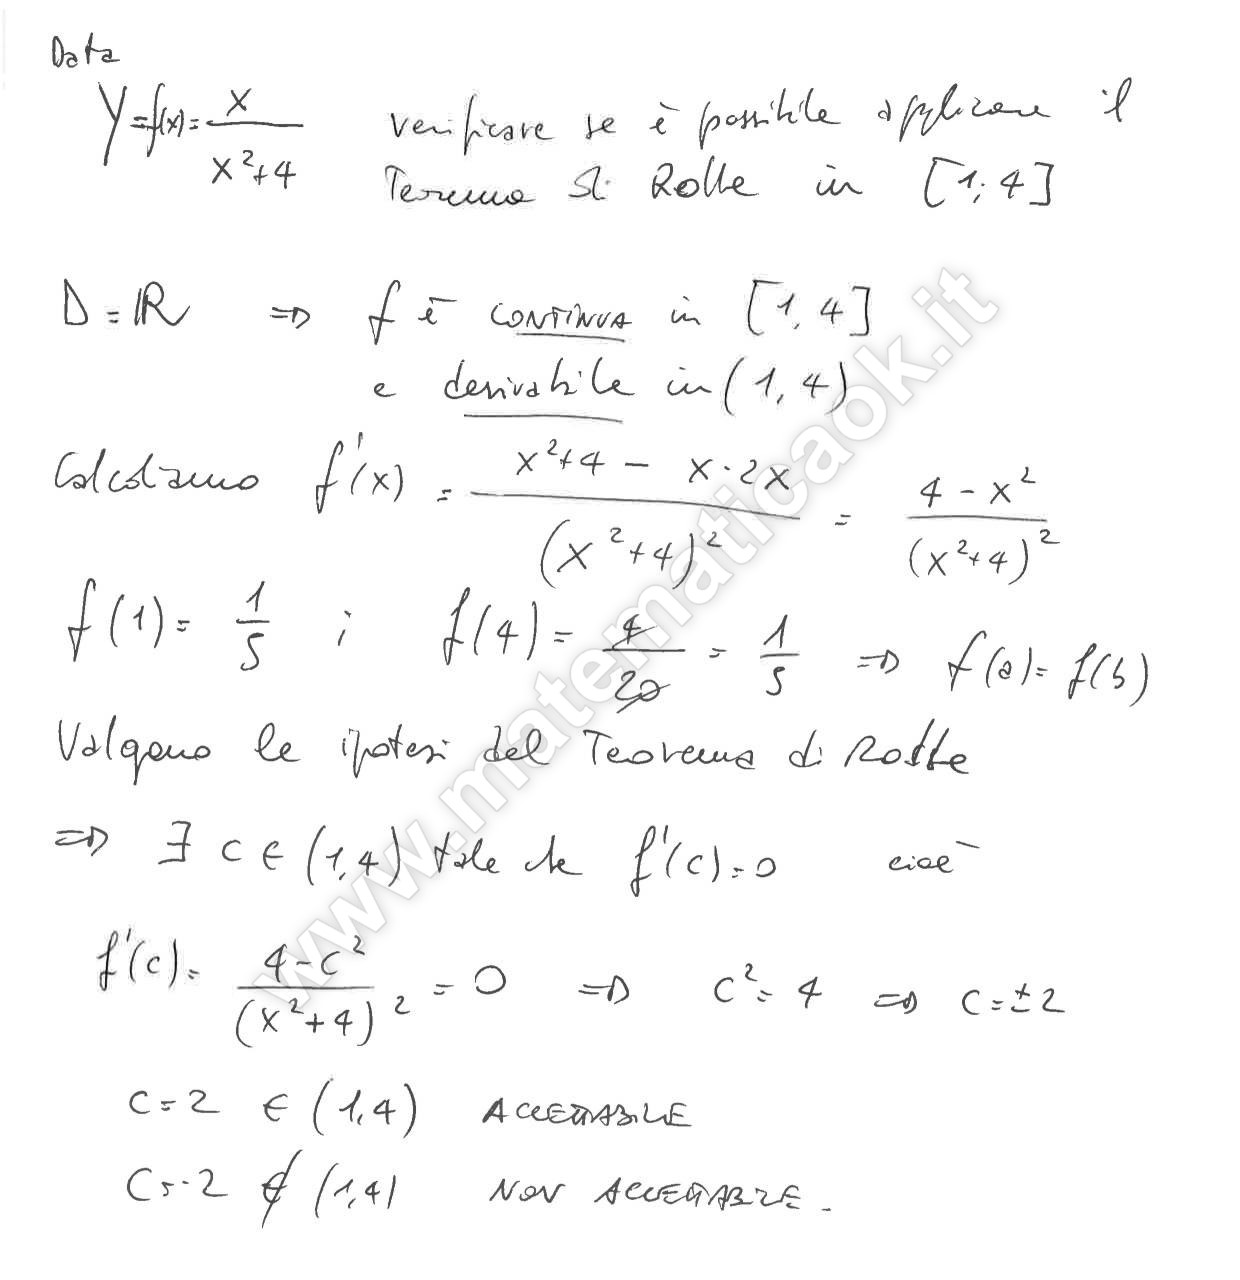 Data
Y=f(x)= x/(x²+4) verificare se è possibile applicare il
Teorema di Rolle in [1; 4]
D = ℝ ⇒ f è CONTINUA in [1, 4]
e derivabile in (1, 4)
Calcoliamo f'(x) = (x²+4 - x·2x)/(x²+4)² = (4-x²)/(x²+4)²
f(1) = 1/5 ; f(4) = 4/20 = 1/5 ⇒ f(a) = f(b)
Valgono le ipotesi del Teorema di Rolle
⇒ ∃ c ∈ (1,4) tale che f'(c) = 0 cioè
f'(c) = (4-c²)/(x²+4)² = 0 ⇒ c² = 4 ⇒ c = ±2
c = 2 ∈ (1,4) ACCETTABILE
c = -2 ∉ (1,4) NON ACCETTABILE.
www.matematicaok.it